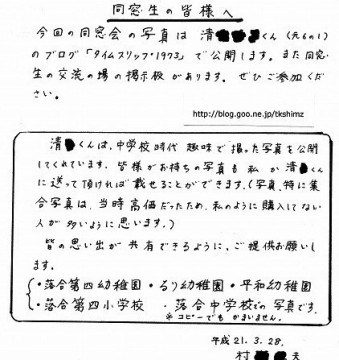 同窓生の皆様へ
今回の同窓会の写真は 清 くん(元6の1)
のブログ「タイムスリップ1973」で公開します。また同窓
生の交流の場の掲示板があります。ぜひご参加くだ
さい。
http://blog.goo.ne.jp/tkshimz
清 くんは、中学校時代 趣味で撮った写真を公開
してくれています。皆様がお持ちの写真も 私か清 くん
に送って頂ければ載せることができます。(写真、特に集
合写真は、当時高価だったため、私のように購入してない
人が多いように思います。)
皆の思い出が共有できるように、ご提供お願いし
ます。
・落合第四幼稚園・るり幼稚園・平和幼稚園
・落合第四小学校 ・落合中学校での写真です。
※コピーでもかまいません。
平成21.3.28.
村 夫